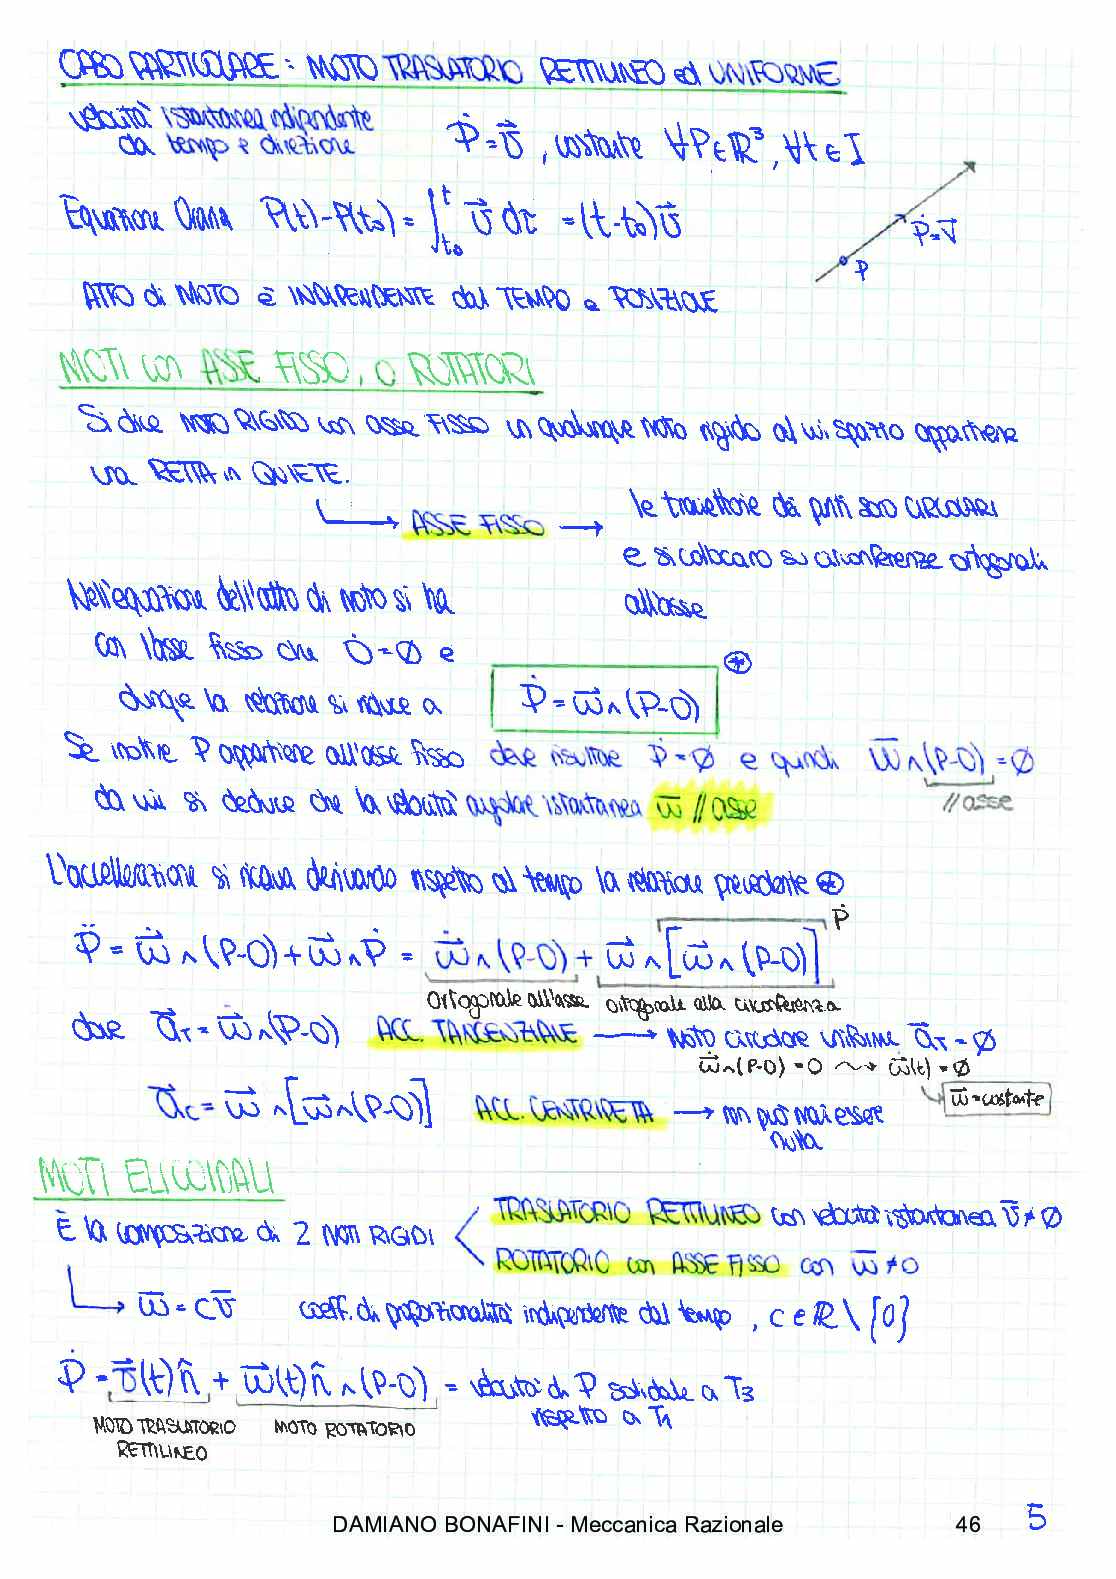 CASO PARTICOLARE: MOTO TRASLATORIO RETTILINEO ed UNIFORME
velocità istantanea indipendente
da tempo e direzione
Ṗ = v⃗ , costante ∀P∈ℝ³, ∀t∈I
Equazione Oraria P(t)-P(t₀) = ∫ₜ₀ᵗ v⃗ dτ = (t-t₀)v⃗
Ṗ=v⃗
P
ATTO di MOTO è INDIPENDENTE dal TEMPO e POSIZIONE
MOTI con ASSE FISSO, o ROTATORI
Si dice MOTO RIGIDO con asse FISSO un qualunque moto rigido al cui spazio appartiene
una RETTA in QUIETE.
→ ASSE FISSO → le traiettorie dei punti sono CIRCOLARI
e si collocano su circonferenze ortogonali
all'asse
Nell'equazione dell'atto di moto si ha
con l'asse fisso che Ȯ=∅ e
dunque la relazione si riduce a Ṗ = ω⃗∧(P-O) ⊛
Se inoltre P appartiene all'asse fisso deve risultare Ṗ=∅ e quindi ω̅∧(P-O) = ∅
// asse
da cui si deduce che la velocità angolare istantanea ω̅ // asse
L'accellerazione si ricava derivando rispetto al tempo la relazione precedente ⊛
Ṗ
P̈ = ω⃗̇∧(P-O) + ω⃗∧Ṗ = ω⃗̇∧(P-O) + ω⃗∧[ω⃗∧(P-O)]
ortogonale all'asse ortogonale alla circonferenza
dove a⃗T = ω⃗̇∧(P-O) ACC. TANGENZIALE → MOTO CIRCOLARE UNIFORME a⃗T = ∅
ω⃗̇∧(P-O) = 0 ⇝ ω⃗̇(t) = ∅
ω̅ = costante
a⃗C = ω⃗∧[ω⃗∧(P-O)] ACC. CENTRIPETA → non può mai essere
nulla
MOTI ELICOIDALI
È la composizione di 2 MOTI RIGIDI
TRASLATORIO RETTILINEO con velocità istantanea v̅ ≠ ∅
ROTATORIO con ASSE FISSO con ω̅ ≠ 0
→ ω̅ = c v̅ coeff. di proporzionalità indipendente dal tempo , c∈ℝ\{0}
Ṗ = v⃗(t)n̂ + ω⃗(t)n̂∧(P-O) = velocità di P solidale a T3
rispetto a T1
MOTO TRASLATORIO
RETTILINEO
MOTO ROTATORIO
DAMIANO BONAFINI - Meccanica Razionale 46 5